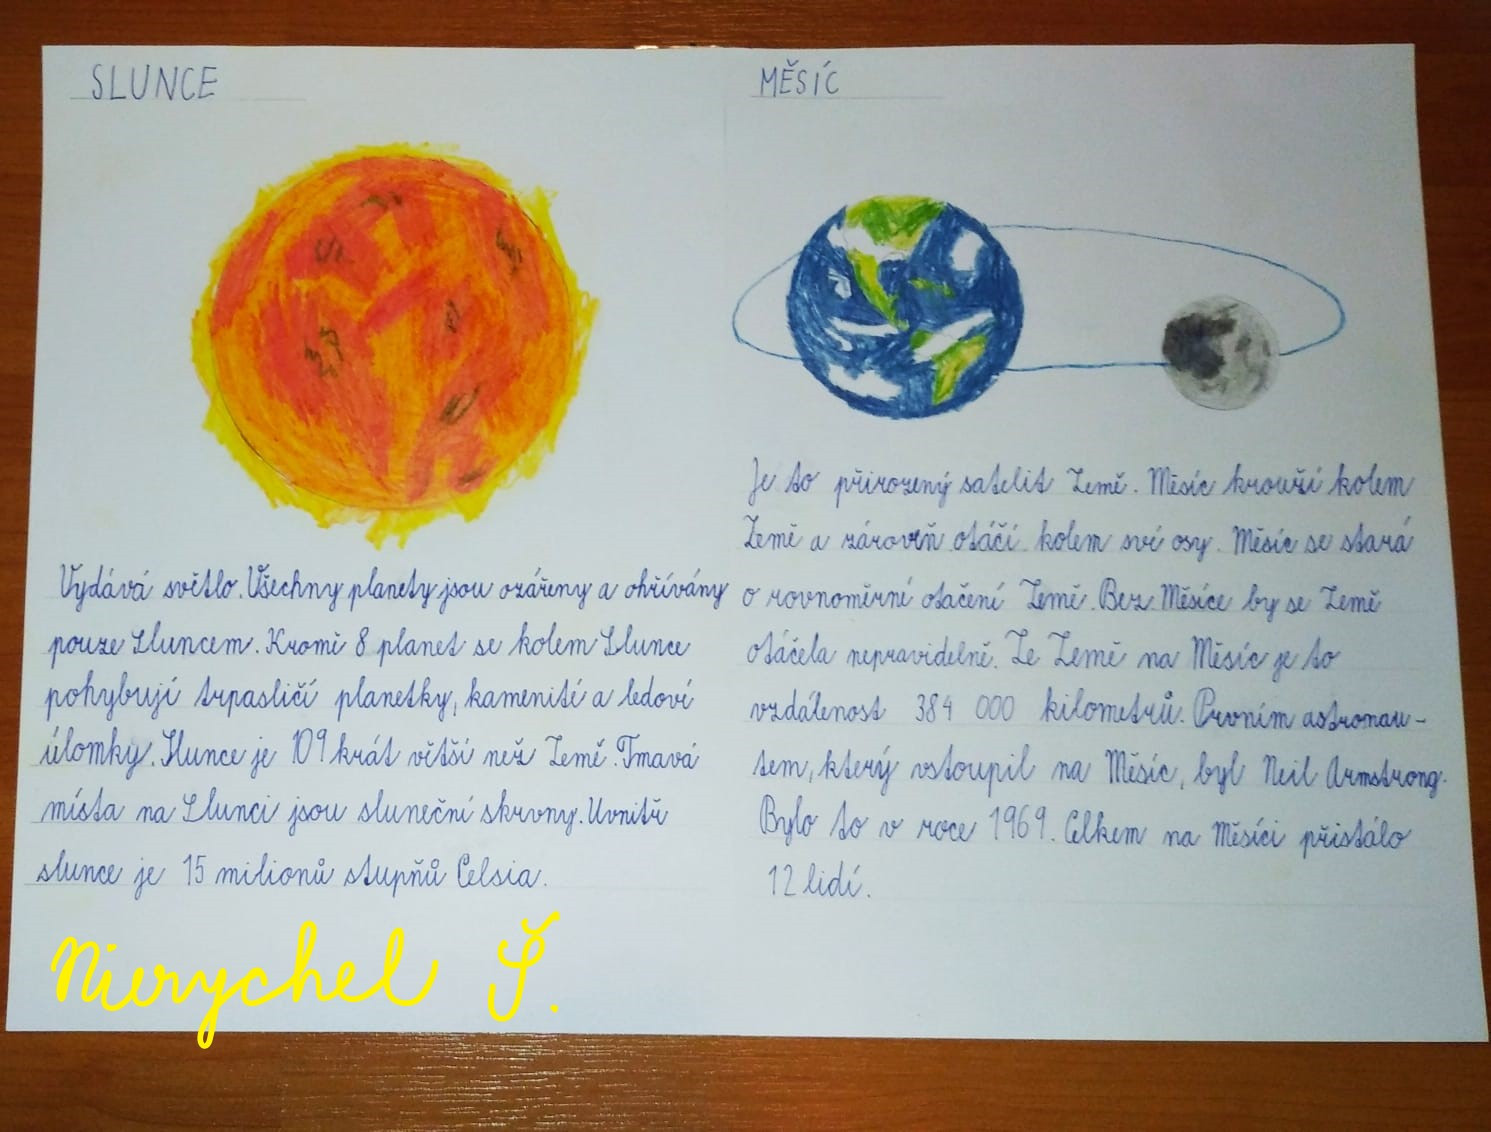 SLUNCE
Vydává světlo. Všechny planety jsou ozářeny a ohřívány
pouze Sluncem. Kromě 8 planet se kolem Slunce
pohybují trpasličí planetky, kamenité a ledové
úlomky. Slunce je 109 krát větší než Země. Tmavá
místa na Slunci jsou sluneční skvrny. Uvnitř
slunce je 15 milionů stupňů Celsia.
Nierychel Š.
MĚSÍC
Je to přirozený satelit Země. Měsíc krouží kolem
Země a zároveň otáčí kolem své osy. Měsíc se stará
o rovnoměrné otáčení Země. Bez Měsíce by se Země
otáčela nepravidelně. Ze Země na Měsíc je to
vzdálenost 384 000 kilometrů. Prvním astronau-
tem, který vstoupil na Měsíc, byl Neil Armstrong.
Bylo to v roce 1969. Celkem na Měsíci přistálo
12 lidí.